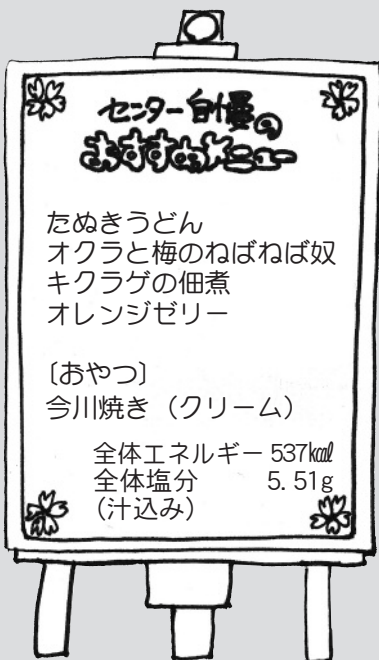 センター自慢の
おすすめメニュー
たぬきうどん
オクラと梅のねばねば奴
キクラゲの佃煮
オレンジゼリー
〔おやつ〕
今川焼き（クリーム）
全体エネルギー 537㎉
全体塩分 5.51g
（汁込み）